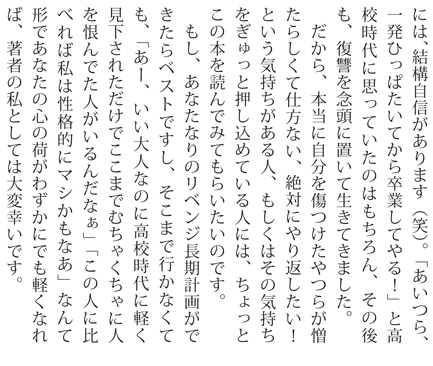 には、結構自信があります（笑）。「あいつら、
一発ひっぱたいてから卒業してやる！」と高
校時代に思っていたのはもちろん、その後
も、復讐を念頭に置いて生きてきました。
　だから、本当に自分を傷つけたやつらが憎
たらしくて仕方ない、絶対にやり返したい！
という気持ちがある人、もしくはその気持ち
をぎゅっと押し込めている人には、ちょっと
この本を読んでみてもらいたいのです。
　もし、あなたなりのリベンジ長期計画がで
きたらベストですし、そこまで行かなくて
も、「あー、いい大人なのに高校時代に軽く
見下されただけでここまでむちゃくちゃに人
を恨んでた人がいるんだなぁ」「この人に比
べれば私は性格的にマシかもなあ」なんて
形であなたの心の荷がわずかにでも軽くなれ
ば、著者の私としては大変幸いです。